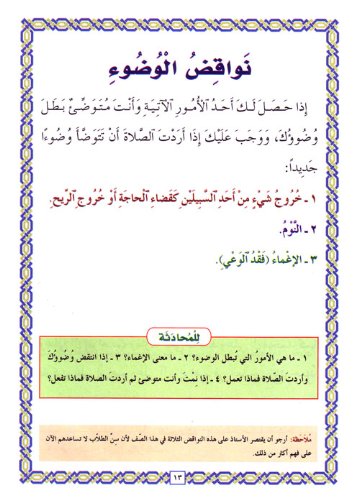 نَواقِضُ الْوُضُوءِ
إِذا حَصَلَ لَكَ أَحَدُ الْأُمُورِ الْآتِيَةِ وَأَنْتَ مُتَوَضِّئٌ بَطَلَ
وُضُوؤُكَ، وَوَجَبَ عَلَيْكَ إِذا أَرَدْتَ الصَّلاةَ أَنْ تَتَوَضَّأَ وُضُوءًا
جَدِيدًا:
١ - خُرُوجُ شَيْءٍ مِنْ أَحَدِ السَّبِيلَيْنِ كَقَضاءِ الْحاجَةِ أَوْ خُرُوجِ الرِّيحِ.
٢ - النَّوْمُ.
٣ - الإِغْماءُ (فَقْدُ الْوَعْيِ).
لِلْمُحادَثَة
١ - ما هي الأمورُ التي تُبطل الوضوء؟ ٢ - ما معنى الإغماء؟ ٣ - إذا انتقض وُضُوؤُكَ
وأردتَ الصَّلاة فماذا تعمل؟ ٤ - إذا نِمْتَ وأنت متوضئ ثم أردت الصلاة فماذا تفعل؟
مُلاحظة: أرجو أن يقتصر الأستاذ على هذه النواقض الثلاثة في هذا الصّف لأن سِنّ الطلاب لا تساعدهم الآن
على فهم أكثر من ذلك.
١٣